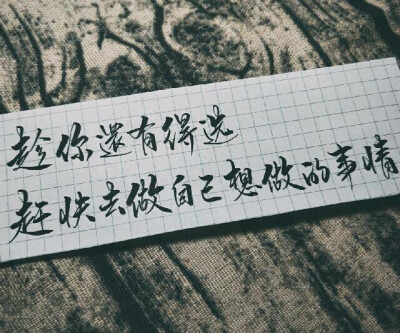 趁你還有得选
赶快去做自己想做的事情